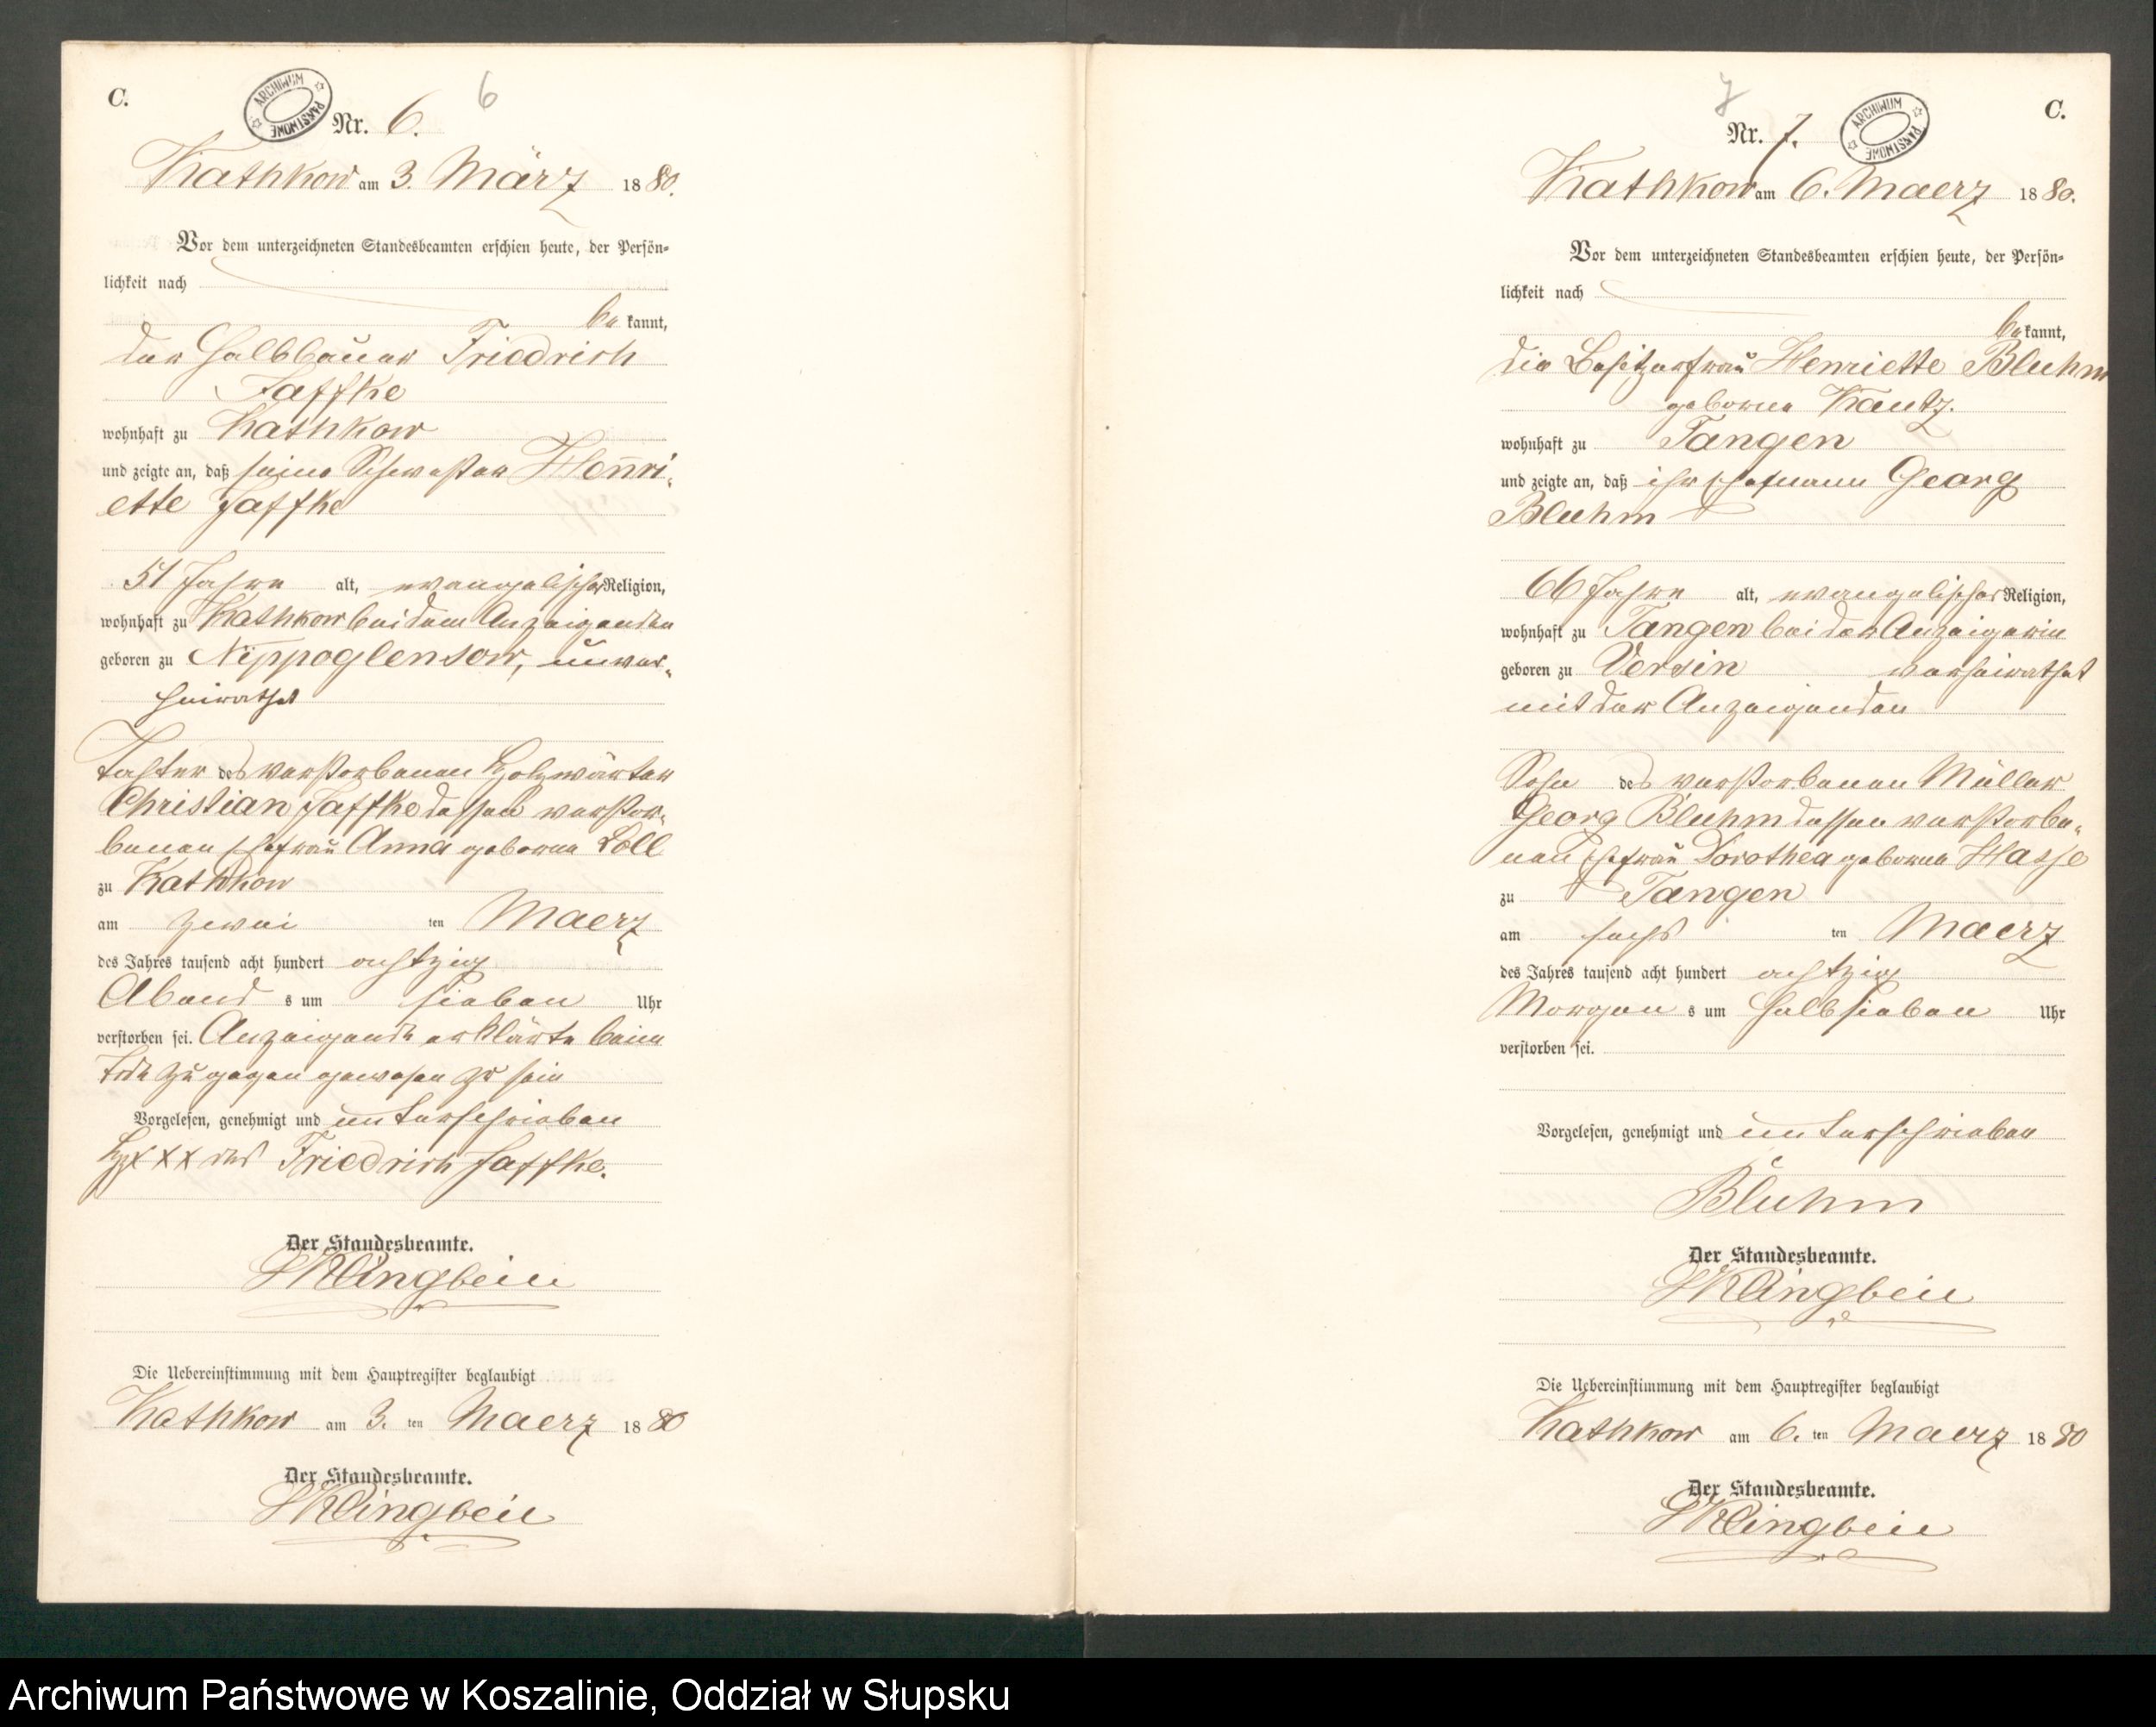 C.
ARCHIWUM PAŃSTWOWE
6
Nr. 6.
Kathkow am 3. März 1880.
Vor dem unterzeichneten Standesbeamten erschien heute, der Persön-
lichkeit nach
bekannt,
der Halbbauer Friedrich
Jaffke
wohnhaft zu Kathkow
und zeigte an, daß seine Schwester Henri-
ette Jaffke
51 Jahre alt, evangelischer Religion,
wohnhaft zu Kathkow bei dem Anzeigenden
geboren zu Nippoglensow, unver-
heirathet
Tochter des verstorbenen Holzwärter
Christian Jaffke dessen verstor-
benen Ehefrau Anna geborne Loll
zu Kathkow
am zwei ten Maerz
des Jahres tausend acht hundert achtzig
Abends um sieben Uhr
verstorben sei. Anzeigende erklärte beim
Tode zugegen gewesen zu sein
Vorgelesen, genehmigt und unterschrieben
Hz x x x des Friedrich Jaffke.
Der Standesbeamte.
Klingbeil
Die Uebereinstimmung mit dem Hauptregister beglaubigt
Kathkow am 3. ten Maerz 1880
Der Standesbeamte.
Klingbeil
C.
7
ARCHIWUM PAŃSTWOWE
Nr. 7.
Kathkow am 6. Maerz 1880.
Vor dem unterzeichneten Standesbeamten erschien heute, der Persön-
lichkeit nach
bekannt,
die Besitzerfrau Henriette Bluhm
geborne Kautz.
wohnhaft zu Tangen
und zeigte an, daß ihr Ehemann Georg
Bluhm
66 Jahre alt, evangelischer Religion,
wohnhaft zu Tangen bei der Anzeigerin
geboren zu Versin verheirathet
mit der Anzeigenden
Sohn des verstorbenen Müller
Georg Bluhm dessen verstorbe-
nen Ehefrau Dorothea geborne Hasse
zu Tangen
am sechs ten Maerz
des Jahres tausend acht hundert achtzig
Morgens um halb sieben Uhr
verstorben sei.
Vorgelesen, genehmigt und unterschrieben
Bluhm
Der Standesbeamte.
Klingbeil
Die Uebereinstimmung mit dem Hauptregister beglaubigt
Kathkow am 6. ten Maerz 1880
Der Standesbeamte.
Klingbeil
Archiwum Państwowe w Koszalinie, Oddział w Słupsku